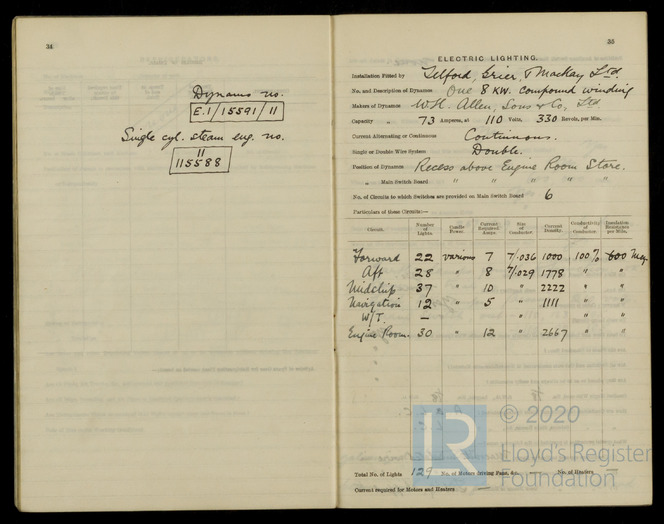 34
Dynamo no.
E.1/15591/11
Single cyl. steam eng. no.
11
115588
35
ELECTRIC LIGHTING.
Installation Fitted by Telford, Grier, & Mackay Ltd.
No. and Description of Dynamos One 8 KW. Compound winding
Makers of Dynamos W.H. Allen, Sons & Co, Ltd.
Capacity „ 73 Amperes, at 110 Volts, 330 Revols. per Min.
Current Alternating or Continuous Continuous.
Single or Double Wire System Double.
Position of Dynamos Recess above Engine Room Store.
„ Main Switch Board " " " " "
No. of Circuits to which Switches are provided on Main Switch Board 6
Particulars of these Circuits:—
Circuit. Number of Lights. Candle Power. Current Required Amps. Size of Conductor. Current Density. Conductivity of Conductor. Insulation Resistance per Mile.
Forward 22 various 7 7/.036 1000 100% 600 Meg.
Aft 28 " 8 7/.029 1778 " "
Midship 37 " 10 " 2222 " "
Navigation 12 " 5 " 1111 " "
W/T. — " " "
Engine Room. 30 " 12 " 2667 " "
Total No. of Lights 129 No. of Motors driving Fans, &c. — No. of Heaters —
Current required for Motors and Heaters —
LR
© 2020
Lloyd's Register
Foundation